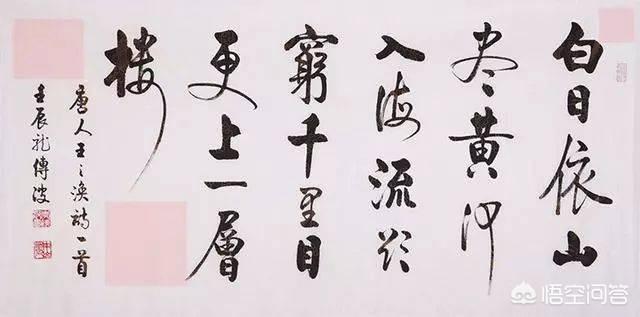 白日依山
尽黄河
入海流欲
窮千里目
更上一層
楼
唐人王之渙詩一首
壬辰龍傳波
悟空问答